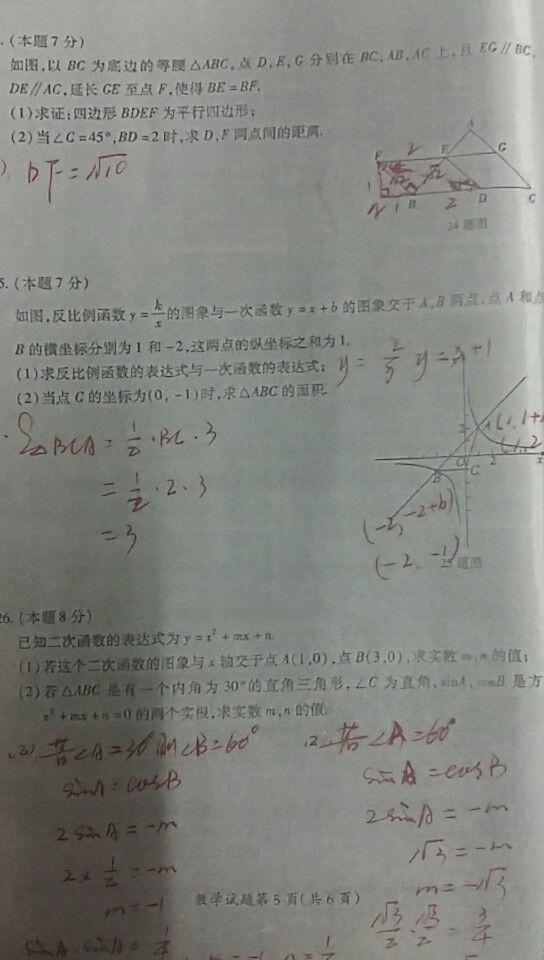 .(本题7分)
如图,以BC为底边的等腰△ABC,点D,E,G分别在BC,AB,AC上,且EG∥BC,
DE∥AC,延长GE至点F,使得BE=BF.
(1)求证:四边形BDEF为平行四边形;
(2)当∠C=45°,BD=2时,求D,F两点间的距离.
DF=√10
A
2
F
E
G
√2
√2
1
2
1
B
2
D
C
24题图
5.(本题7分)
如图,反比例函数y=k/x的图象与一次函数y=x+b的图象交于A,B两点,点A和点
B的横坐标分别为1和-2,这两点的纵坐标之和为1.
(1)求反比例函数的表达式与一次函数的表达式;
y=x+1
(2)当点C的坐标为(0,-1)时,求△ABC的面积.
S△BCA=1/2·BC·3
=1/2·2·3
=3
2
A
(1,2
O
2
x
B
C
(-2,-2+b)
(-2,-1)
25题图
26.(本题8分)
已知二次函数的表达式为y=x²+mx+n.
(1)若这个二次函数的图象与x轴交于点A(1,0),点B(3,0),求实数m,n的值;
(2)若△ABC是有一个内角为30°的直角三角形,∠C为直角,sinA,cosB是方
x²+mx+n=0的两个实根,求实数m,n的值.
若∠A=30°则∠B=60°
sinA=cosB
2sinA=-m
2×1/2=-m
m=-1
sinA·sinA=1/4
若∠A=60°
sinA=cosB
2sinA=-m
√3=-m
m=-√3
√3/2·√3/2=3/4
数学试题第5页(共6页)